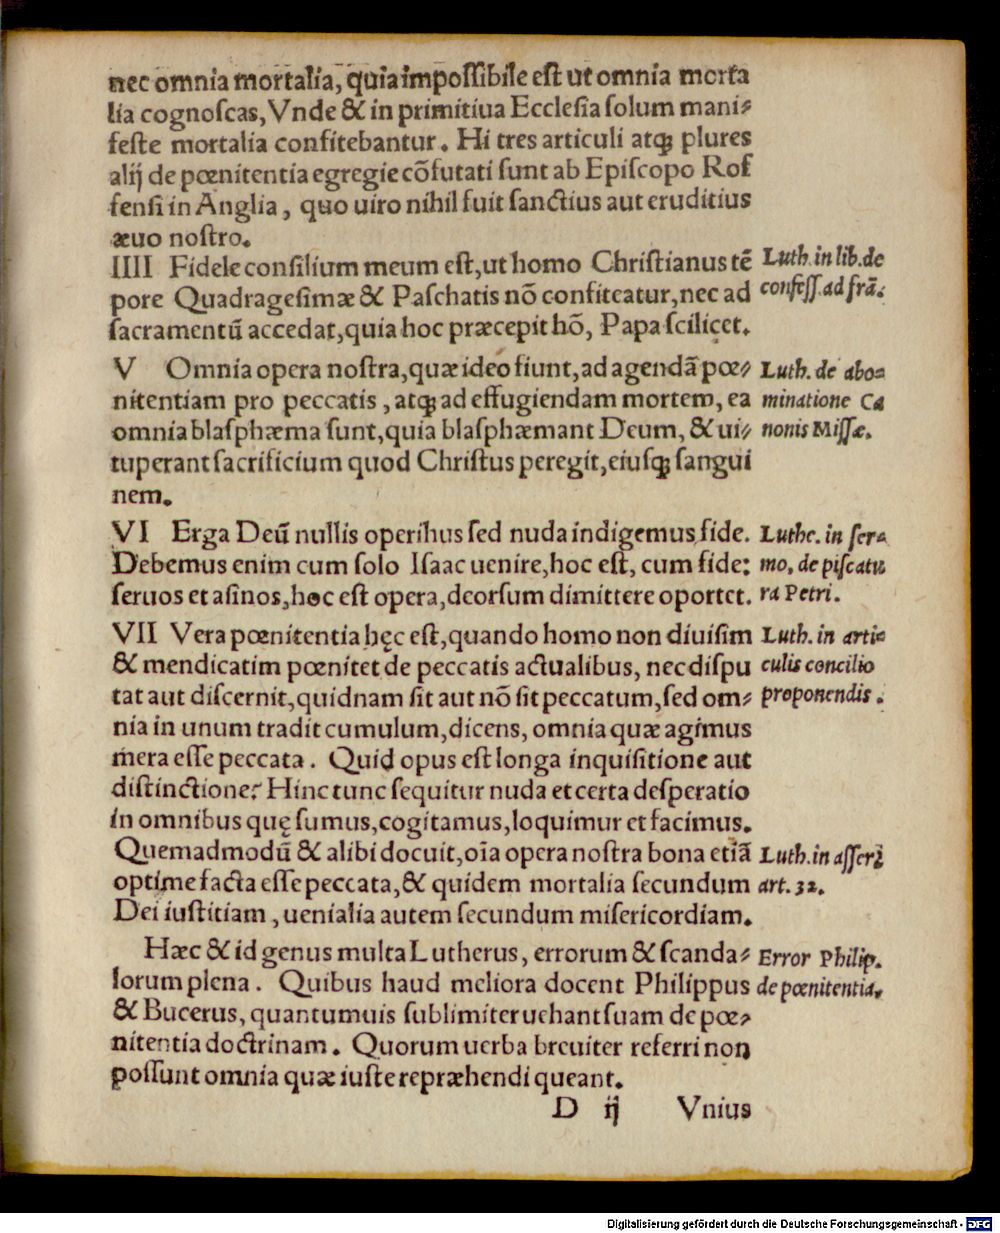 nec omnia mortalia, quia impoſſibile eſt ut omnia morta
lia cognoſcas, Vnde & in primitiua Eccleſia ſolum mani⸗
feſte mortalia confitebantur. Hi tres articuli atq; plures
alij de pœnitentia egregie cõfutati ſunt ab Epiſcopo Rof
fenſi in Anglia, quo uiro nihil fuit ſanctius aut eruditius
æuo noſtro.
IIII Fidele conſilium meum eſt, ut homo Chriſtianus tẽ
Luth. in lib. de
pore Quadrageſimæ & Paſchatis nõ confiteatur, nec ad
confeſſ. ad frã.
ſacramentũ accedat, quia hoc præcepit hõ, Papa ſcilicet.
V Omnia opera noſtra, quæ ideo fiunt, ad agendã pœ⸗
Luth. de abo⸗
nitentiam pro peccatis, atq; ad effugiendam mortem, ea
minatione Ca
omnia blaſphæma ſunt, quia blaſphæmant Deum, & ui⸗
nonis Miſſæ.
tuperant ſacrificium quod Chriſtus peregit, eiuſq; ſangui
nem.
VI Erga Deũ nullis operibus ſed nuda indigemus fide.
Luthe. in ſer⸗
Debemus enim cum ſolo Iſaac uenire, hoc eſt, cum fide:
mo. de piſcatu
ſeruos et aſinos, hoc eſt opera, deorſum dimittere oportet.
ra Petri.
VII Vera pœnitentia hęc eſt, quando homo non diuiſim
Luth. in arti⸗
& mendicatim pœnitet de peccatis actualibus, nec diſpu
culis concilio
tat aut diſcernit, quidnam ſit aut nõ ſit peccatum, ſed om⸗
proponendis.
nia in unum tradit cumulum, dicens, omnia quæ agimus
mera eſſe peccata. Quid opus eſt longa inquiſitione aut
diſtinctione? Hinc tunc ſequitur nuda et certa deſperatio
in omnibus quę ſumus, cogitamus, loquimur et facimus.
Quemadmodũ & alibi docuit, oĩa opera noſtra bona etiã
Luth. in aſſerĩ
optime facta eſſe peccata, & quidem mortalia ſecundum
art. 32.
Dei iuſtitiam, uenialia autem ſecundum miſericordiam.
Hæc & id genus multa Lutherus, errorum & ſcanda⸗
Error Philip.
lorum plena. Quibus haud meliora docent Philippus
de pœnitentia.
& Bucerus, quantumuis ſublimiter uehant ſuam de pœ⸗
nitentia doctrinam. Quorum uerba breuiter referri non
poſſunt omnia quæ iuſte repræhendi queant.
D ij Vnius
Digitalisierung gefördert durch die Deutsche Forschungsgemeinschaft - DFG